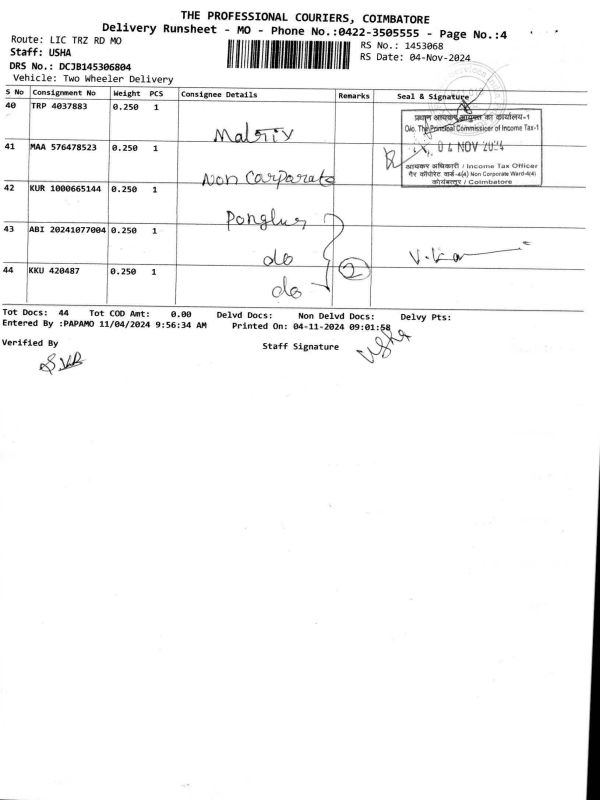 THE PROFESSIONAL COURIERS, COIMBATORE
Delivery Runsheet - MO - Phone No.:0422-3505555 - Page No.:4
Route: LIC TRZ RD MO
RS No.: 1453068
Staff: USHA
RS Date: 04-Nov-2024
DRS No.: DCJB145306804
Vehicle: Two Wheeler Delivery
S No Consignment No Weight PCS Consignee Details Remarks Seal & Signature
40 TRP 4037883 0.250 1 Matrix
प्रधान आयकर आयुक्त का कार्यालय-1
O/o. The Principal Commissioner of Income Tax-1
04 NOV 2024
आयकर अधिकारी / Income Tax Officer
गैर कॉर्पोरेट वार्ड-4(4) Non Corporate Ward-4(4)
कोयंबत्तूर / Coimbatore
41 MAA 576478523 0.250 1 Non Carporate
42 KUR 1000665144 0.250 1
43 ABI 20241077004 0.250 1 do 2
44 KKU 420487 0.250 1 do
Tot Docs: 44 Tot COD Amt: 0.00 Delvd Docs: Non Delvd Docs: Delvy Pts:
Entered By :PAPAMO 11/04/2024 9:56:34 AM Printed On: 04-11-2024 09:01:58
Verified By
Staff Signature Usha